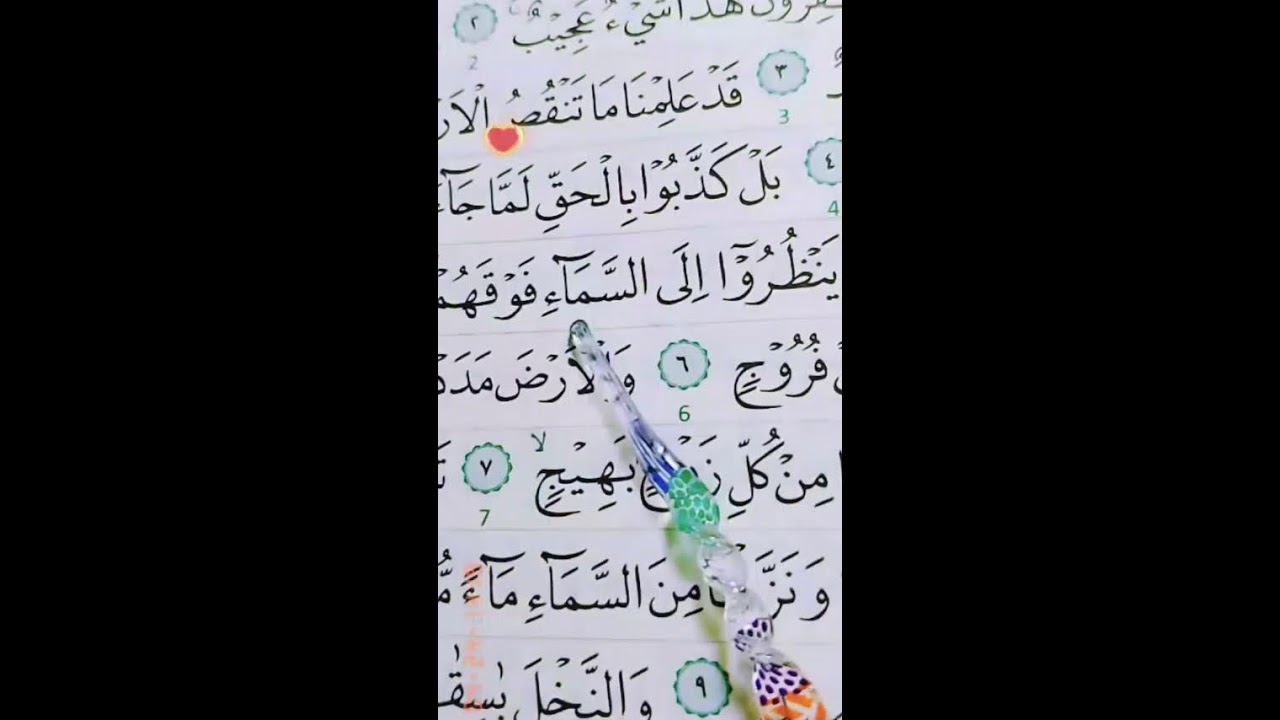 هٰذَا شَيْءٌ عَجِيْبٌ ٢
2
٣ قَدْ عَلِمْنَا مَا تَنْقُصُ الْاَرْ
3
٤ بَلْ كَذَّبُوْا بِالْحَقِّ لَمَّا جَآءَ
4
يَنْظُرُوْٓا اِلَى السَّمَآءِ فَوْقَهُمْ
فُرُوْجٍ ٦ وَالْاَرْضَ مَدَدْ
6
مِنْ كُلِّ زَوْجٍۭ بَهِيْجٍ ۙ ٧
7
مِنَ السَّمَآءِ مَآءً مُّ
٩ وَالنَّخْلَ بٰسِقٰ